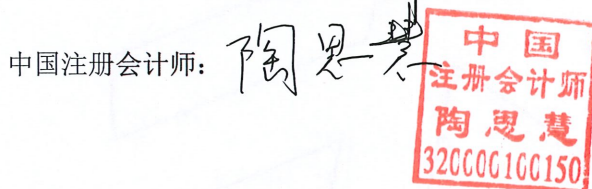 中国注册会计师：陶思慧
中国
注册会计师
陶思慧
320000100150